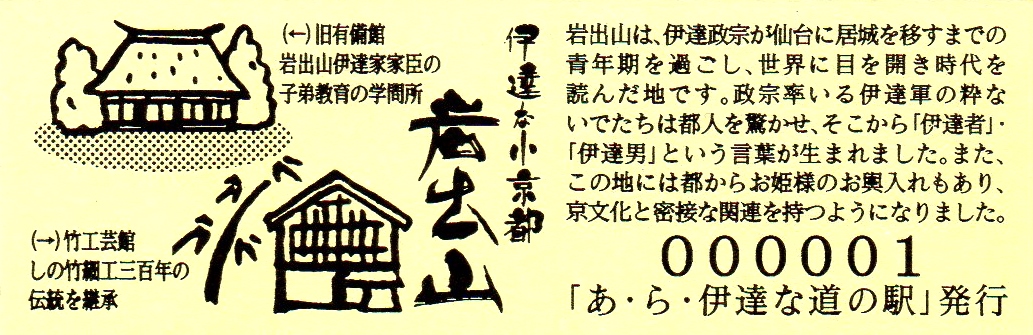 (←)旧有備館
岩出山伊達家家臣の
子弟教育の学問所
伊達な小京都
岩出山
(→)竹工芸館
しの竹細工三百年の
伝統を継承
岩出山は、伊達政宗が仙台に居城を移すまでの
青年期を過ごし、世界に目を開き時代を
読んだ地です。政宗率いる伊達軍の粋な
いでたちは都人を驚かせ、そこから「伊達者」・
「伊達男」という言葉が生まれました。また、
この地には都からお姫様のお輿入れもあり、
京文化と密接な関連を持つようになりました。
000001
「あ・ら・伊達な道の駅」発行